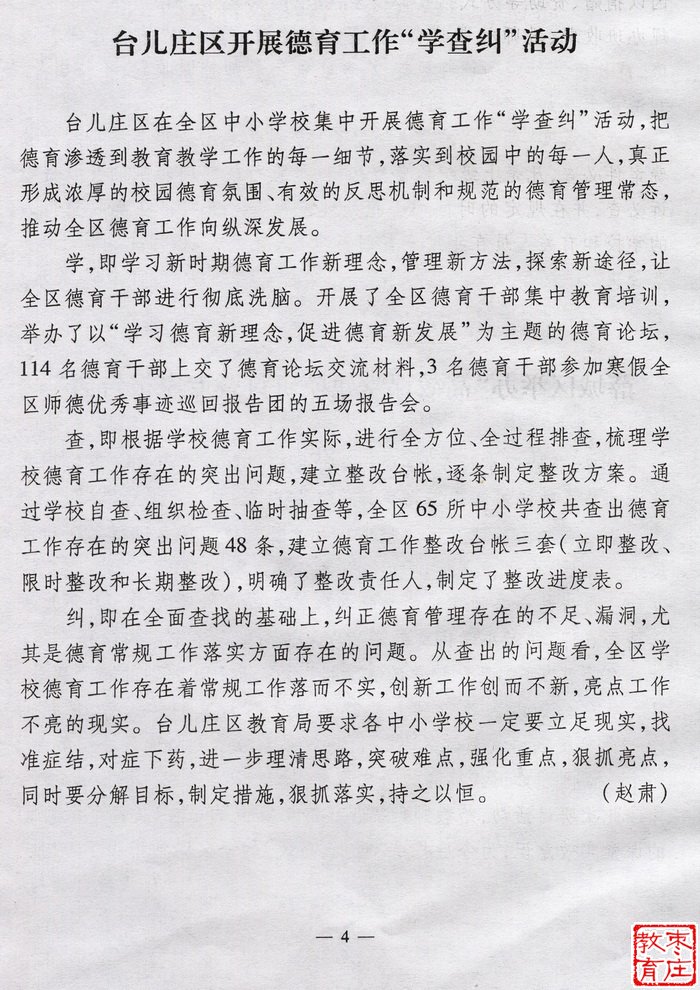 台儿庄区开展德育工作“学查纠”活动
台儿庄区在全区中小学校集中开展德育工作“学查纠”活动,把
德育渗透到教育教学工作的每一细节,落实到校园中的每一人,真正
形成浓厚的校园德育氛围、有效的反思机制和规范的德育管理常态,
推动全区德育工作向纵深发展。
学,即学习新时期德育工作新理念,管理新方法,探索新途径,让
全区德育干部进行彻底洗脑。开展了全区德育干部集中教育培训,
举办了以“学习德育新理念,促进德育新发展”为主题的德育论坛,
114 名德育干部上交了德育论坛交流材料,3 名德育干部参加寒假全
区师德优秀事迹巡回报告团的五场报告会。
查,即根据学校德育工作实际,进行全方位、全过程排查,梳理学
校德育工作存在的突出问题,建立整改台帐,逐条制定整改方案。通
过学校自查、组织检查、临时抽查等,全区 65 所中小学校共查出德育
工作存在的突出问题 48 条,建立德育工作整改台帐三套(立即整改、
限时整改和长期整改),明确了整改责任人,制定了整改进度表。
纠,即在全面查找的基础上,纠正德育管理存在的不足、漏洞,尤
其是德育常规工作落实方面存在的问题。从查出的问题看,全区学
校德育工作存在着常规工作落而不实,创新工作创而不新,亮点工作
不亮的现实。台儿庄区教育局要求各中小学校一定要立足现实,找
准症结,对症下药,进一步理清思路,突破难点,强化重点,狠抓亮点,
同时要分解目标,制定措施,狠抓落实,持之以恒。 (赵肃)
— 4 —
枣庄
教育